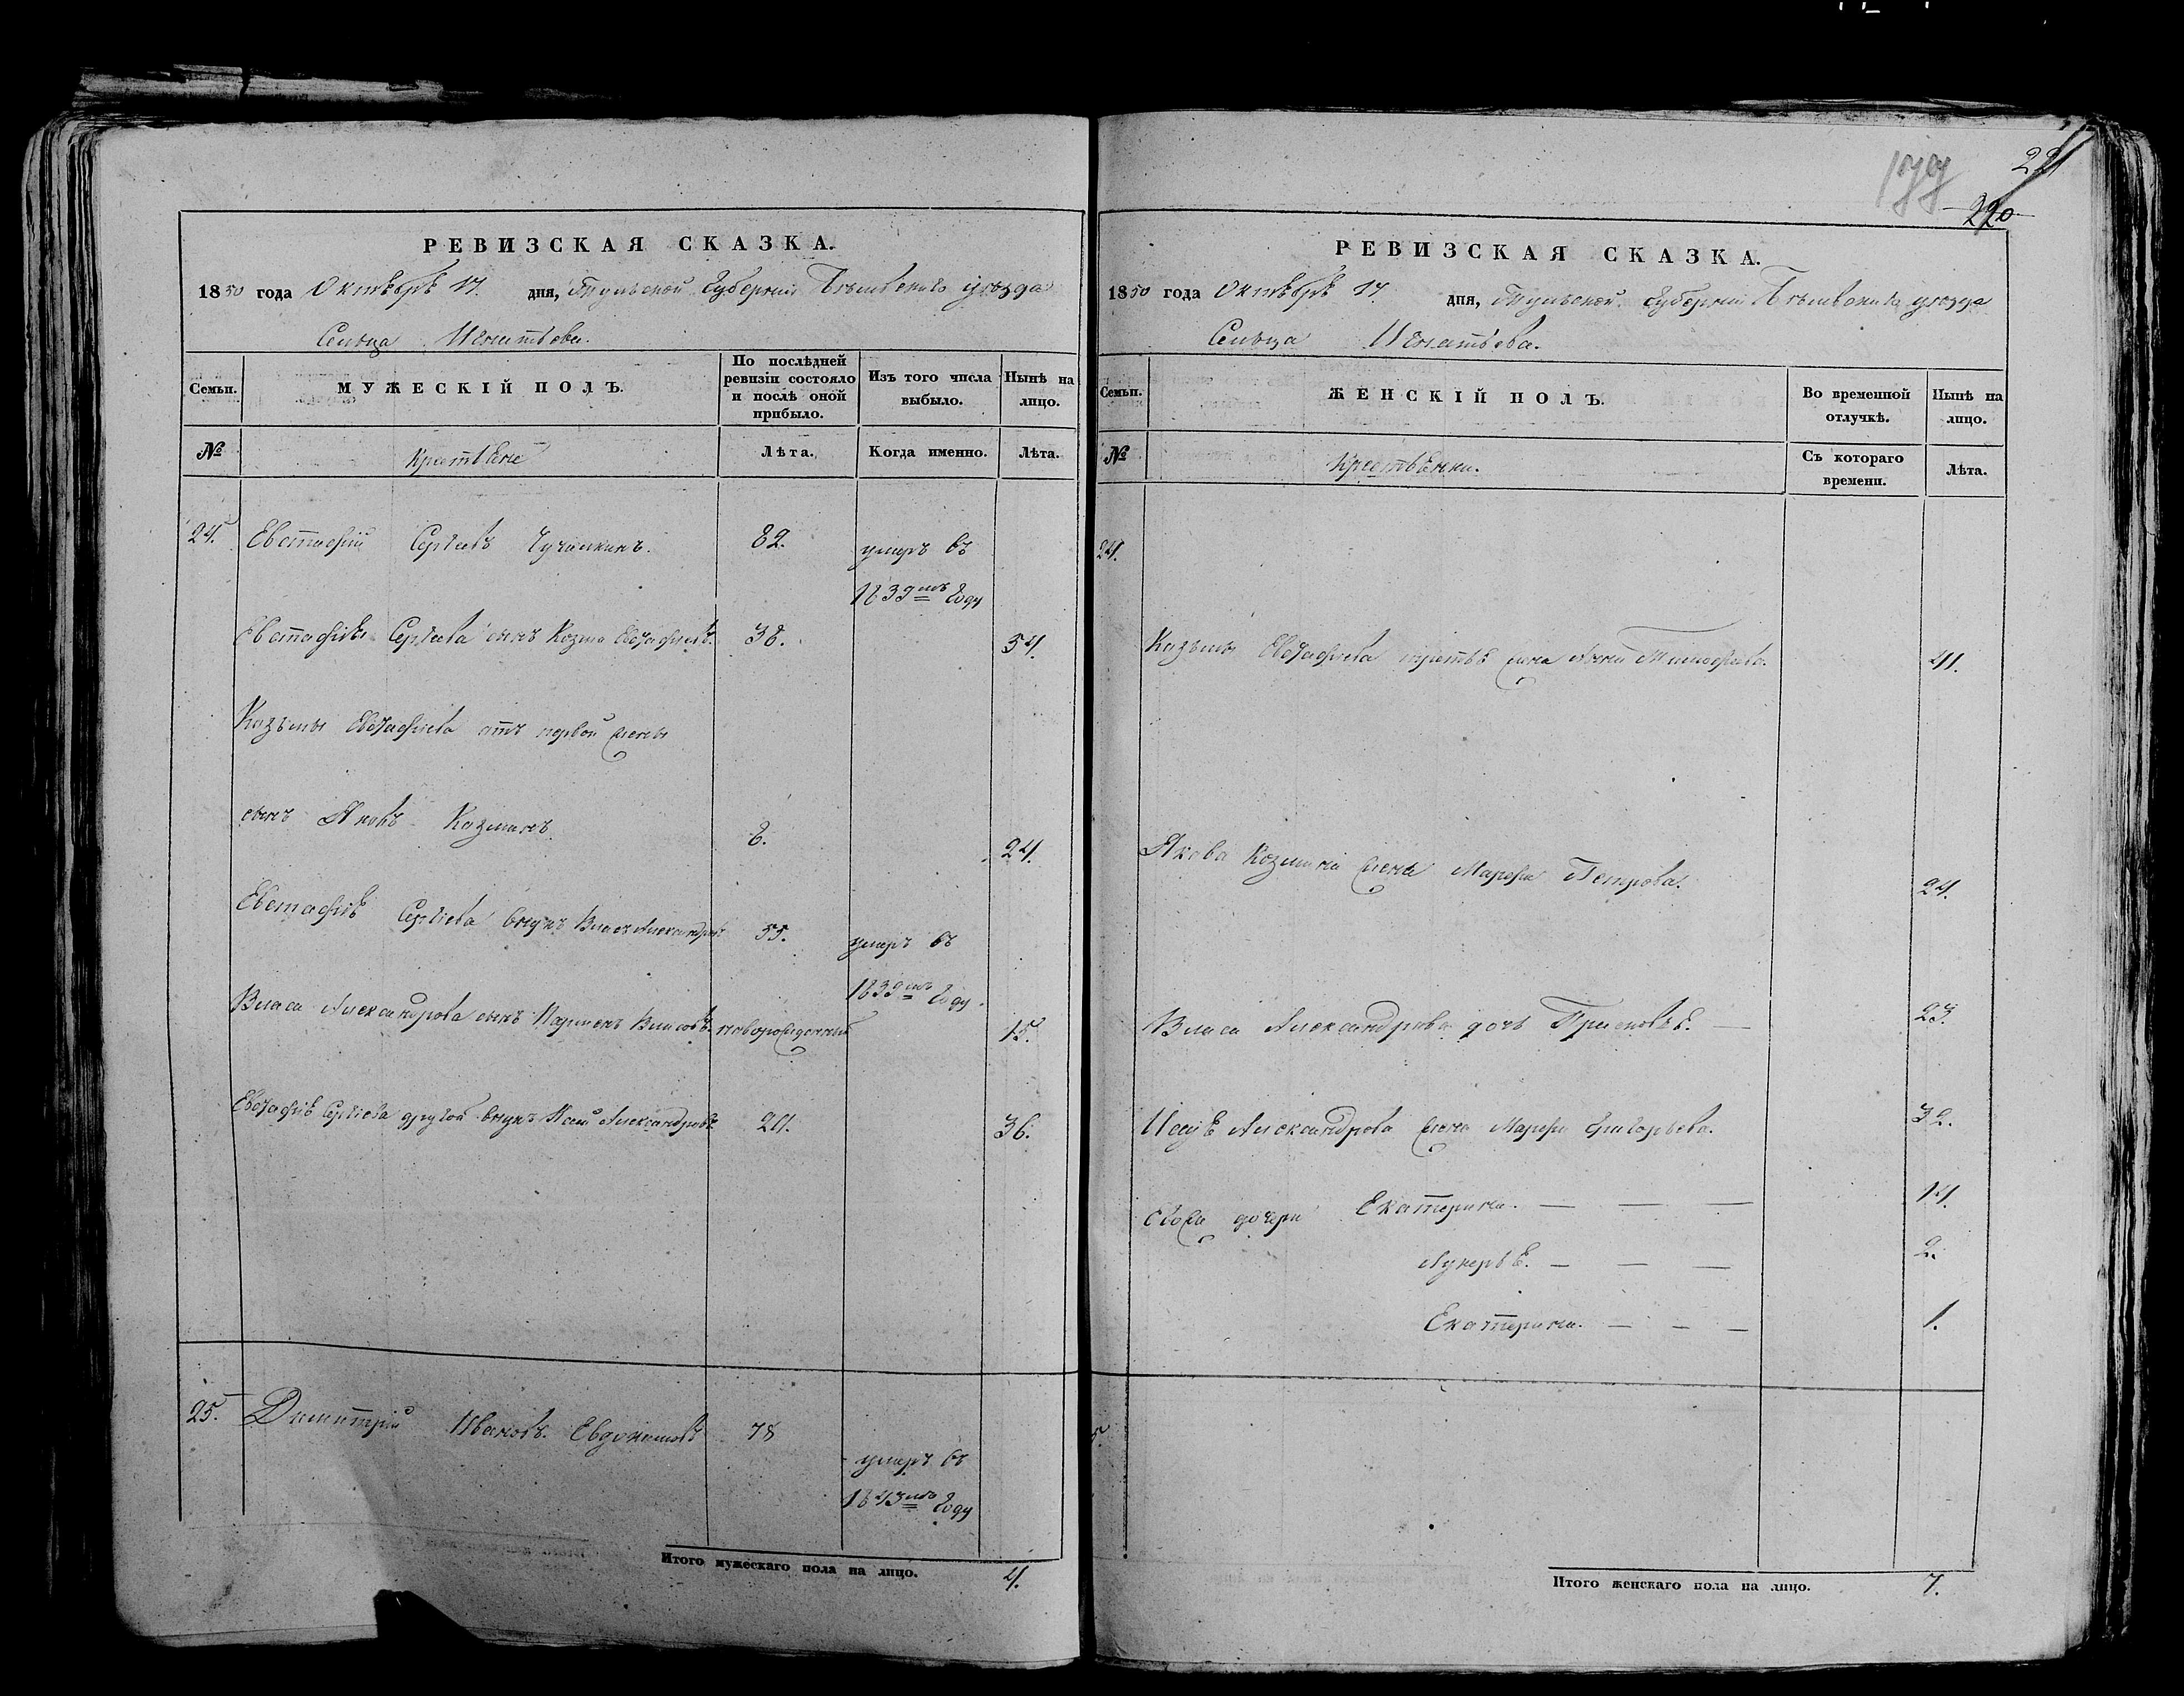 221
220
РЕВИЗСКАЯ СКАЗКА.
1850 года Октября 17. дня, Тульской Губернии Бѣлевскаго уѣзда
Сельца Игнатьева.
Семьи.
МУЖЕСКІЙ ПОЛЪ.
По послѣдней ревизіи состояло и послѣ оной прибыло.
Изъ того числа выбыло.
Нынѣ на лицо.
№
Крестьяне
Лѣта.
Когда именно.
Лѣта.
24. Евстафій Сергѣевъ 82. умеръ въ
1839мъ Году
Евстафія Сергѣева сынъ Козма Евстафьевъ. 38. 54.
Казьмы Евстафьева отъ первой жены
сынъ Яковъ Козминъ 8. 24.
Евстафія Сергѣева внукъ Власъ Александровъ 35. умеръ въ
1839мъ Году.
Власа Александрова сынъ Парменъ Власовъ новорожденный 15.
Евстафія Сергѣева другой внукъ Исай Александровъ 20. 36.
25. Димитрій Ивановъ Евдокимовъ 78
умеръ въ
1843мъ Году
Итого мужескаго пола на лицо. 4.
РЕВИЗСКАЯ СКАЗКА.
1850 года Октября 17. дня, Тульской Губерніи Бѣлевскаго уѣзда
Сельца Игнатьева.
Семьи.
ЖЕНСКІЙ ПОЛЪ.
Во временной отлучкѣ.
Нынѣ на лицо.
№
Крестьянки.
Съ котораго времени.
Лѣта.
24.
Казьмы Евстафьева третья жена Анна 41.
Якова Козмина жена Марфа Петрова. 24.
Власа Александрова дочь Прасковья. 23.
Исая Александрова жена Марфа Григорьева. 32.
дочери Екатерина. 14.
Лукерья. 2.
Екатерина. 1.
Итого женскаго пола на лицо. 7.